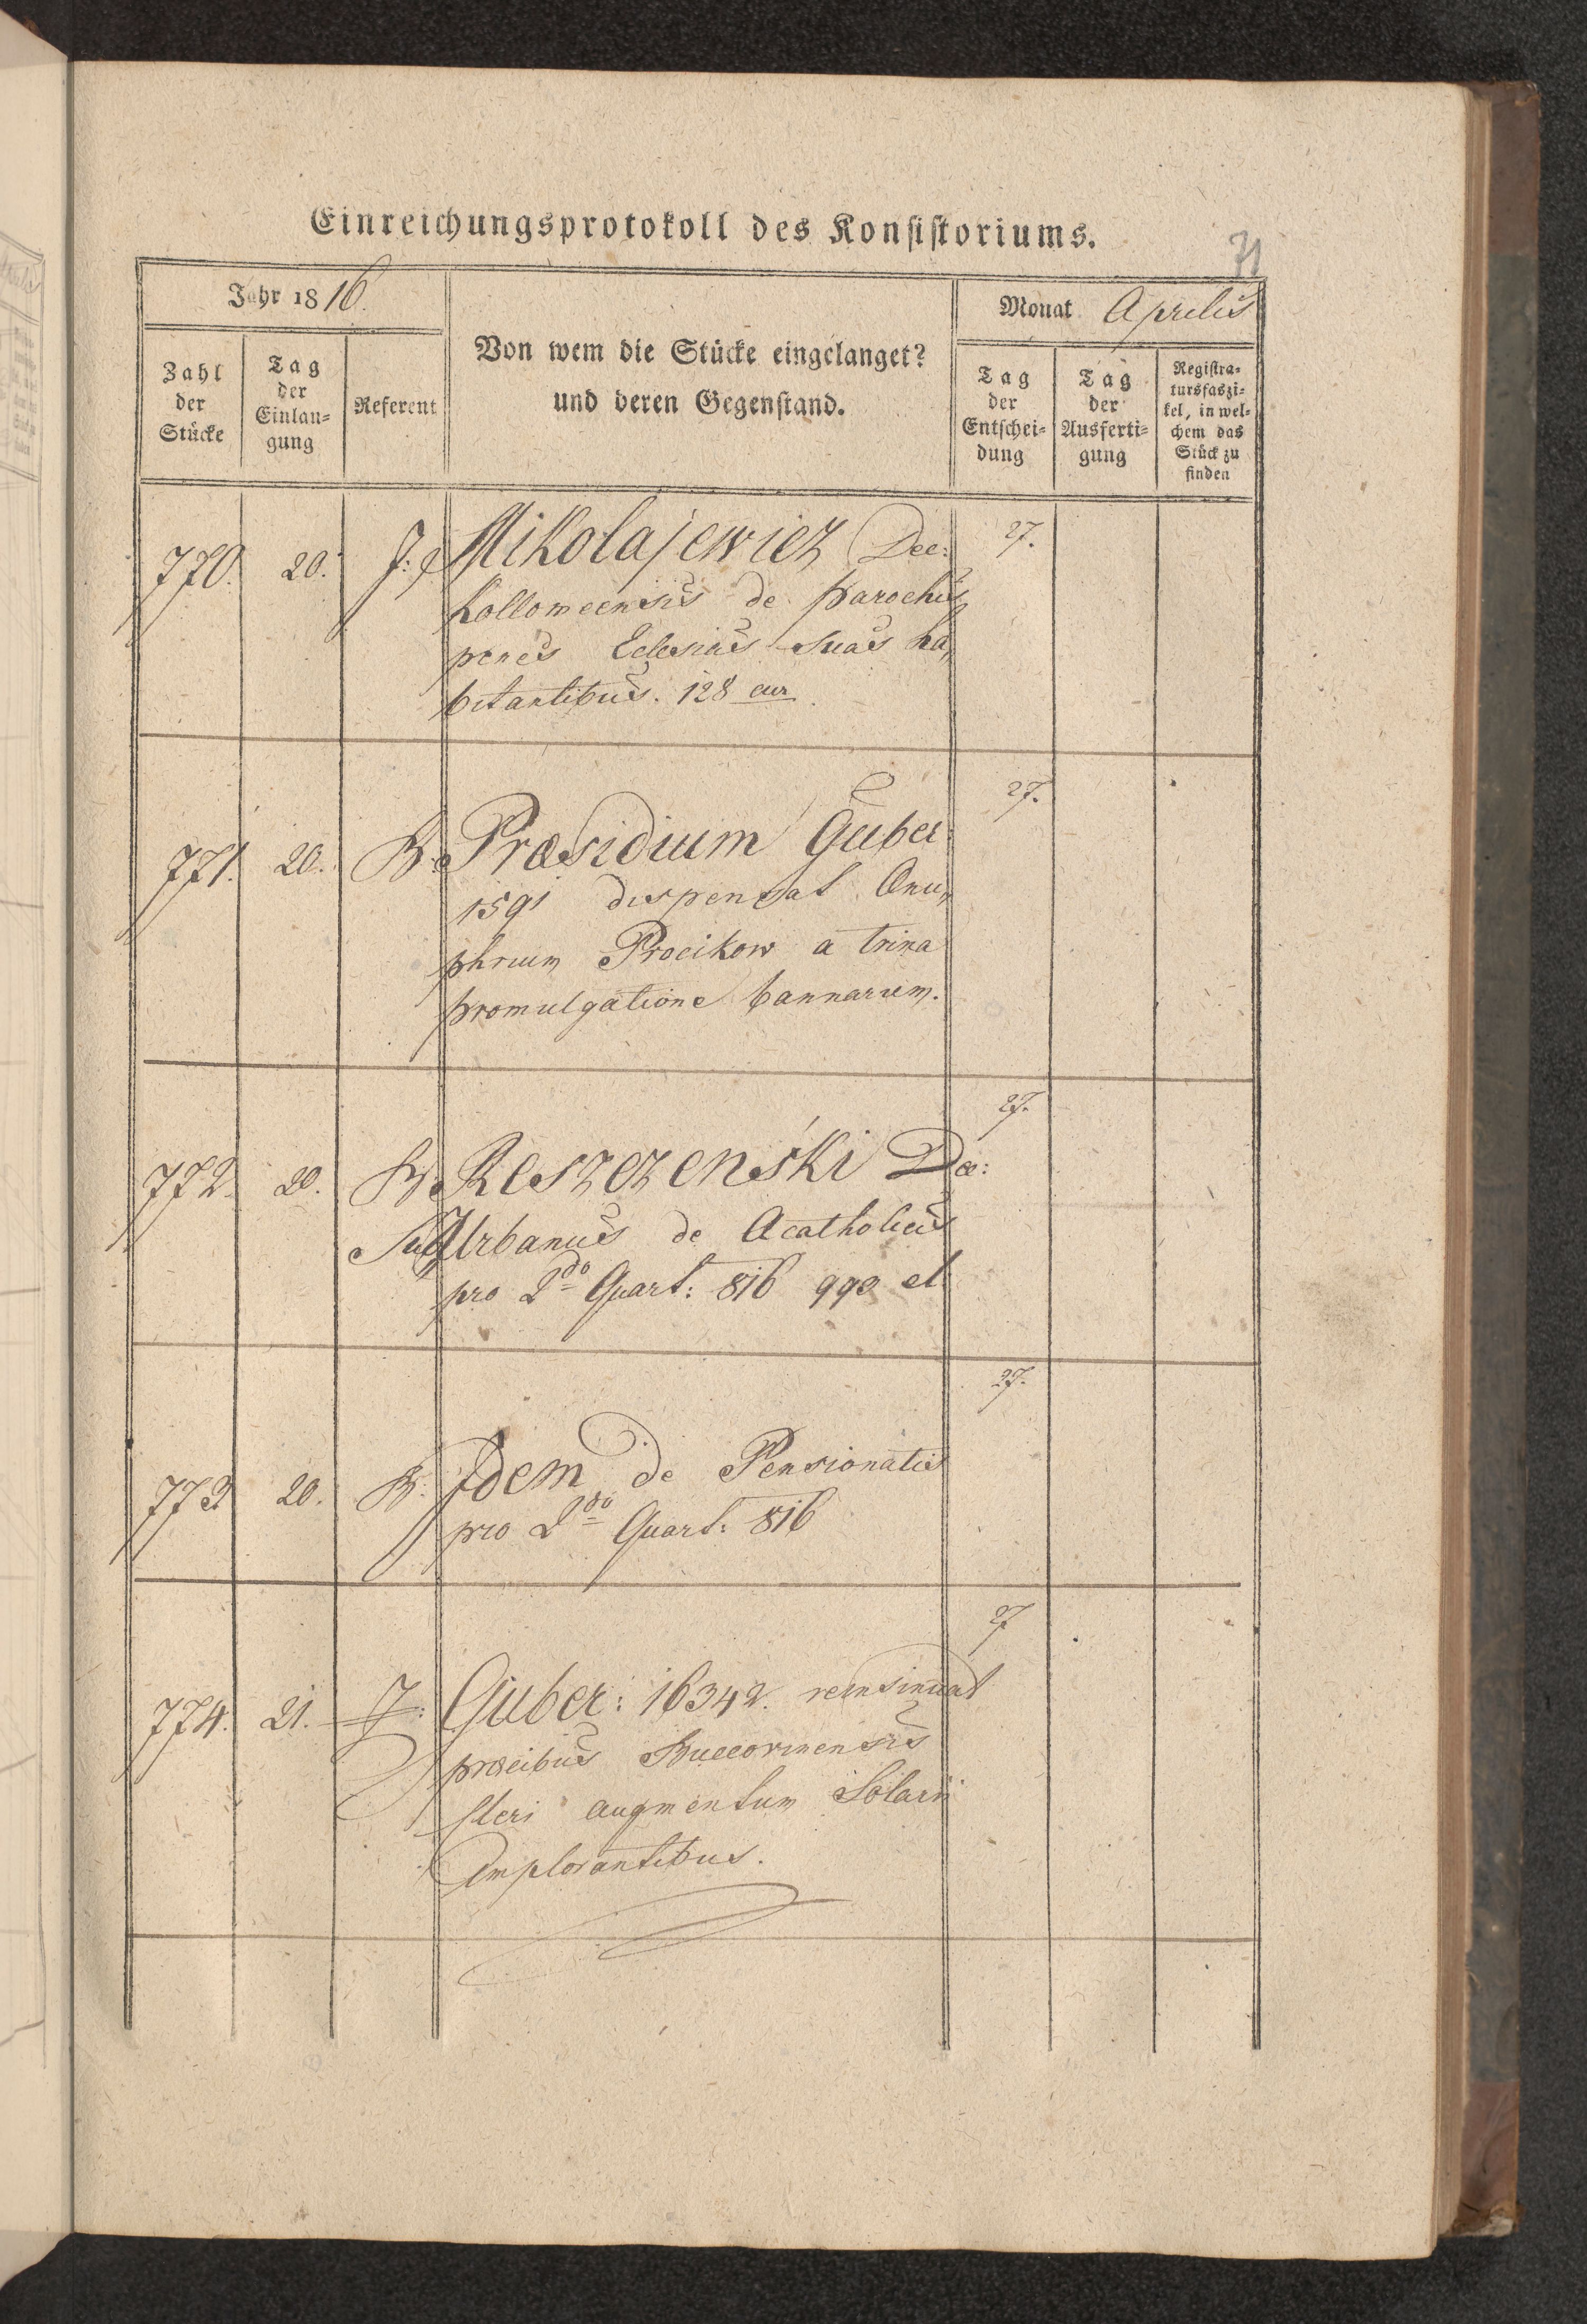 Einreichungsprotokoll des Konsistoriums.
71
Jahr 1816.
Monat Aprilis
Zahl der Stücke
Tag der Einlangung
Referent
Von wem die Stücke eingelanget?
und deren Gegenstand.
Tag der Entscheidung
Tag der Ausfertigung
Registratursfaszikel, in welchem das Stück zu finden
770. 20. J: Mikolajewicz Dec: 27.
Kollomeensis de parochis
penes Eclesias suas ha„
bitantibus. 128 cur
771. 20. B. Præsidium Guber: 27.
1591 dispensat Onu„
phrium Procikow a trina
promulgatione bannarum.
772. 20. B. Reszczeński Dec: 27.
SubUrbanus de Acatholicis
pro 2do Quart: 816 990 et
773 20. B. Idem de Pensionatis 27.
pro 2do Quart: 816
774. 21. J: Guber: 16342. reinsinuat 27
præcibus Buccovinensis
Cleri augmentum Solarii
Implorantibus.